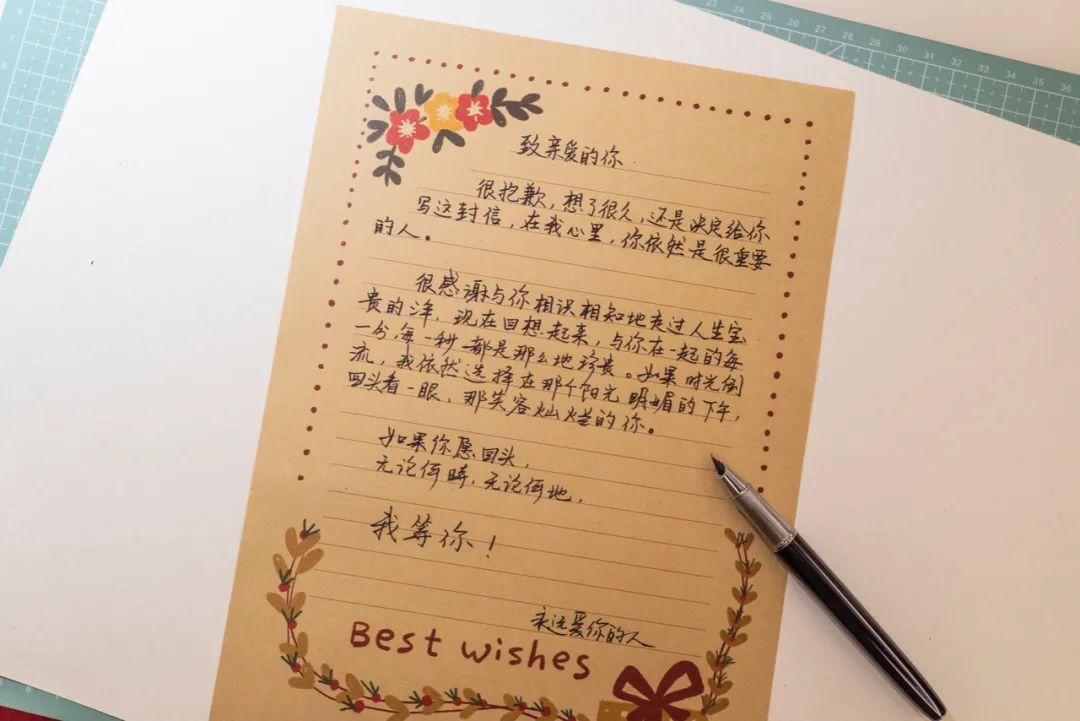 致亲爱的你
很抱歉，想了很久，还是决定给你
写这封信，在我心里，你依然是很重要
的人。
很感谢与你相识相知地走过人生宝
贵的年，现在回想起来，与你在一起的每
一分，每一秒都是那么地珍贵。如果时光倒
流，我依然选择在那个阳光明媚的下午，
回头看一眼，那笑容灿烂的你。
如果你愿回头，
无论何时，无论何地，
我等你！
永远爱你的人
Best wishes
23 24 25 26 27 28 29 30 31 32 33 34 35 36